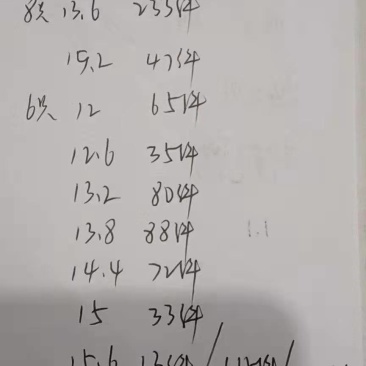 8只 13.6 233件
15.2 47件
6只 12 65件
12.6 35件
13.2 80件
13.8 88件
14.4 72件
15 33件
15.6